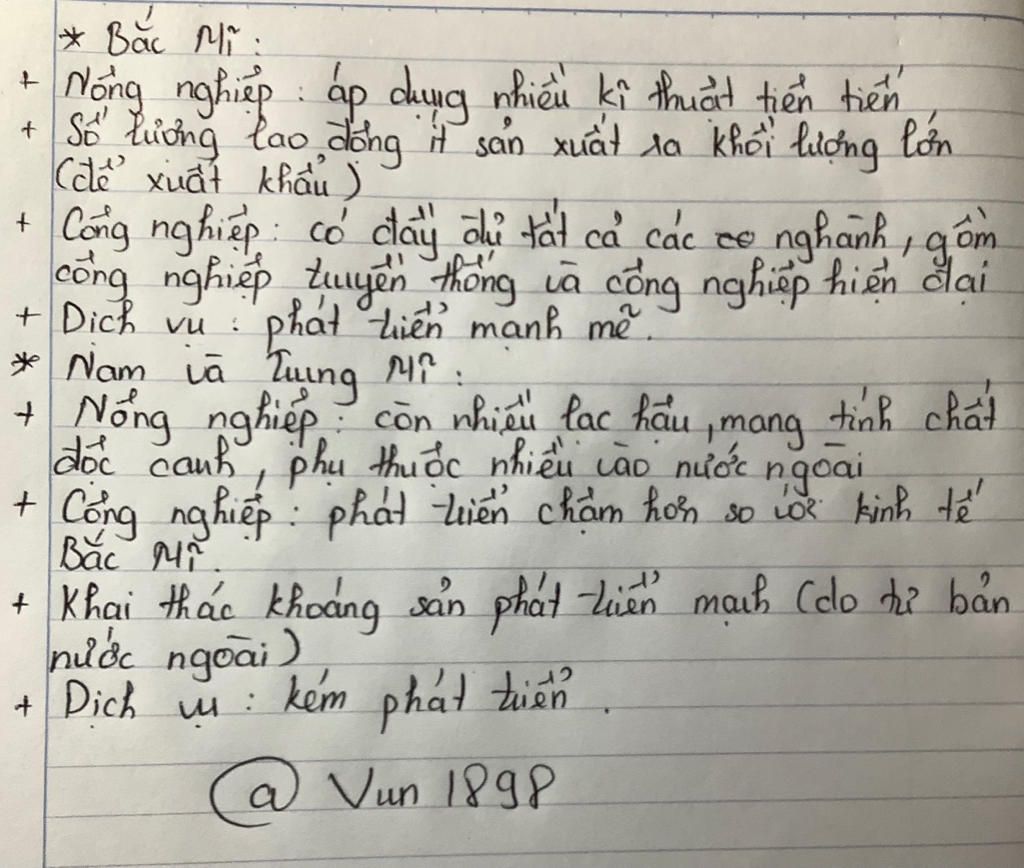 * Bắc Mĩ :
+ Nông nghiệp : áp dụng nhiều kĩ thuật tiên tiến,
+ Số lượng lao động ít sản xuất ra khối lượng lớn
(để xuất khẩu)
+ Công nghiệp : có đầy đủ tất cả các nghành, gồm
công nghiệp truyền thống và công nghiệp hiện đại
+ Dịch vụ : phát triển mạnh mẽ.
* Nam và Trung Mĩ :
+ Nông nghiệp : còn nhiều lạc hậu, mang tính chất
độc canh, phụ thuộc nhiều vào nước ngoài
+ Công nghiệp : phát triển chậm hơn so với kinh tế
Bắc Mĩ.
+ Khai thác khoáng sản phát triển mạnh (do tư bản
nước ngoài)
+ Dịch vụ : kém phát triển.
@ Vun 1898